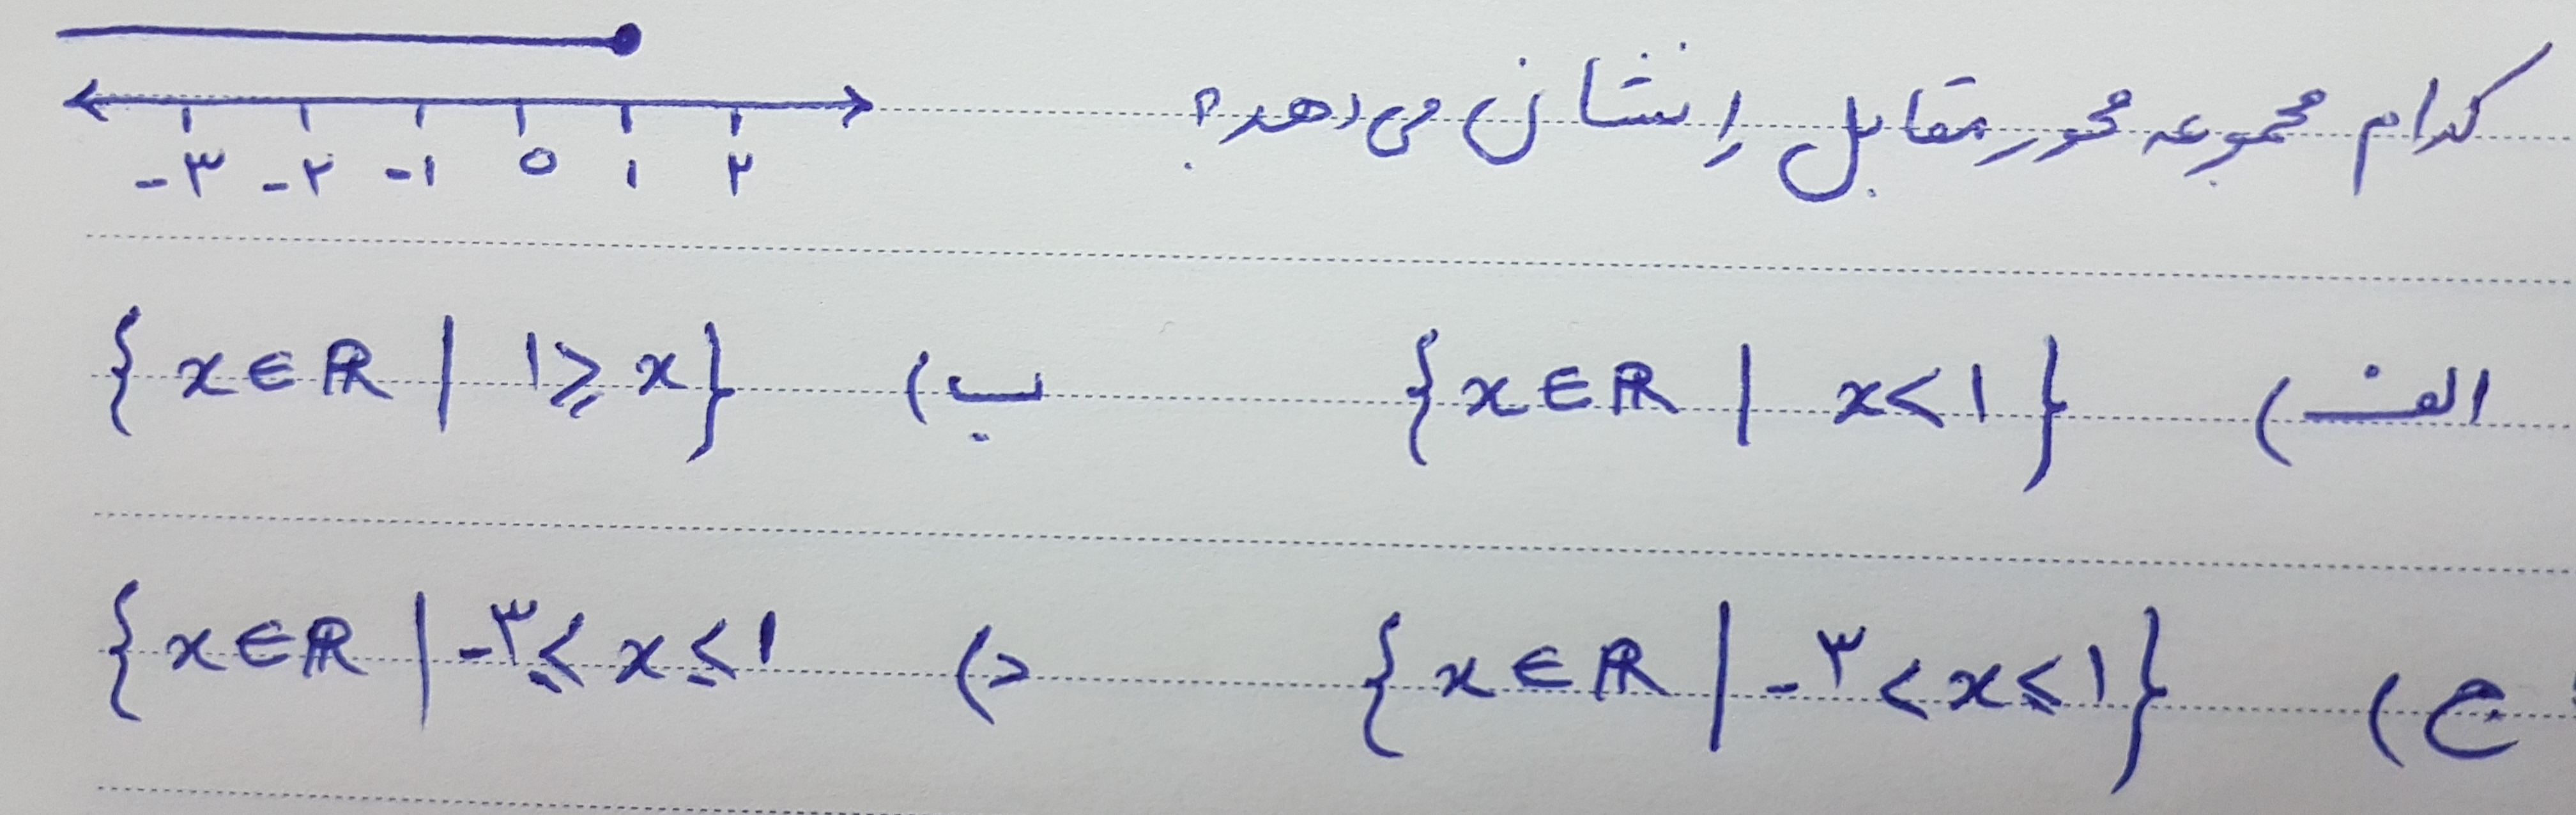 کدام مجموعه محور مقابل را نشان می‌دهد؟
-۳ -۲ -۱ ۰ ۱ ۲
الف) {x∈ℝ | x<۱}
ب) {x∈ℝ | ۱≥x}
ج) {x∈ℝ | -۳<x≤۱}
د) {x∈ℝ | -۳≤x≤۱